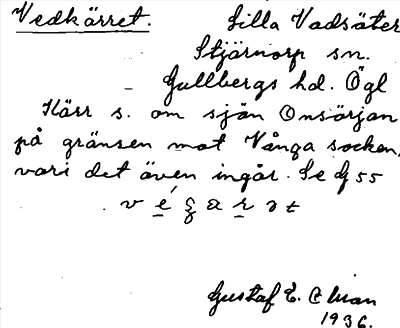 Vedkärret. Lilla Vadsäter
Stjärnorp sn.
Gullbergs hd. Ögl
Kärr s. om sjön Onsörjan
på gränsen mot Vånga socken,
vari det även ingår. Se G 55
Gustaf E.
1936.